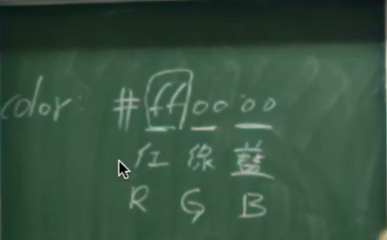 color: #ff0000
红 绿 蓝
R G B